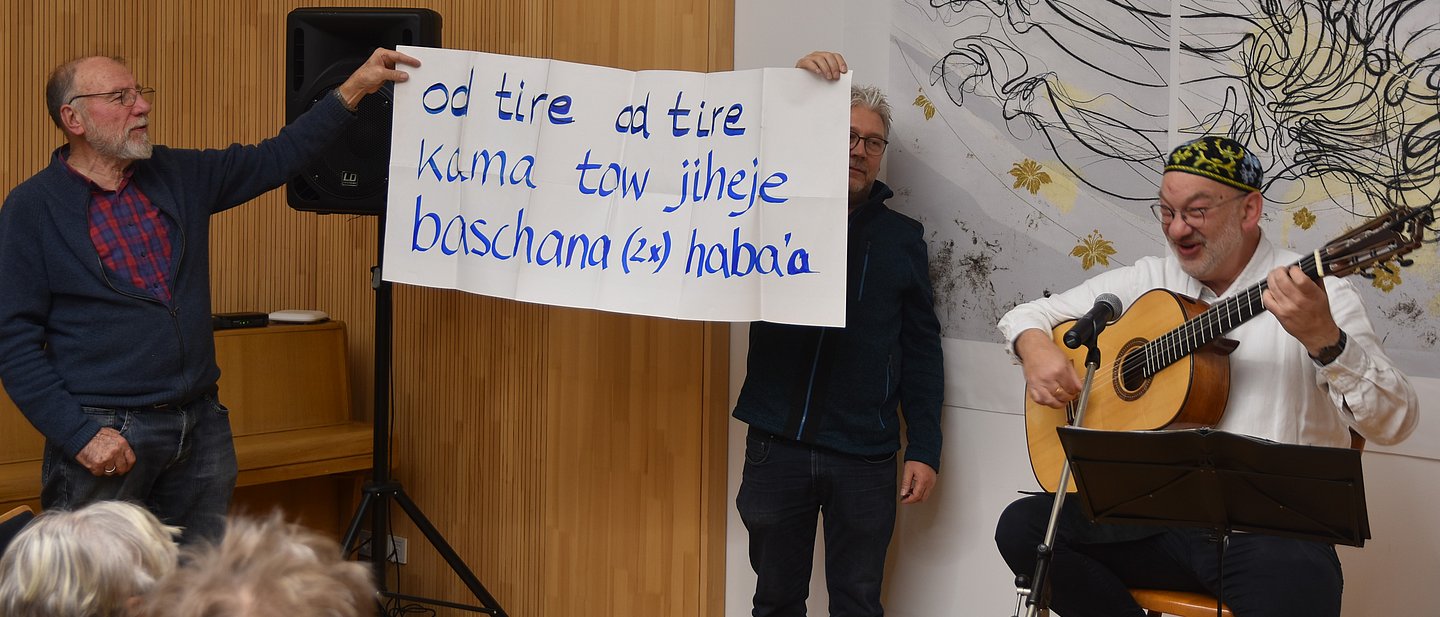 od tire od tire
kama tow jiheje
baschana (2x) haba'a
LD